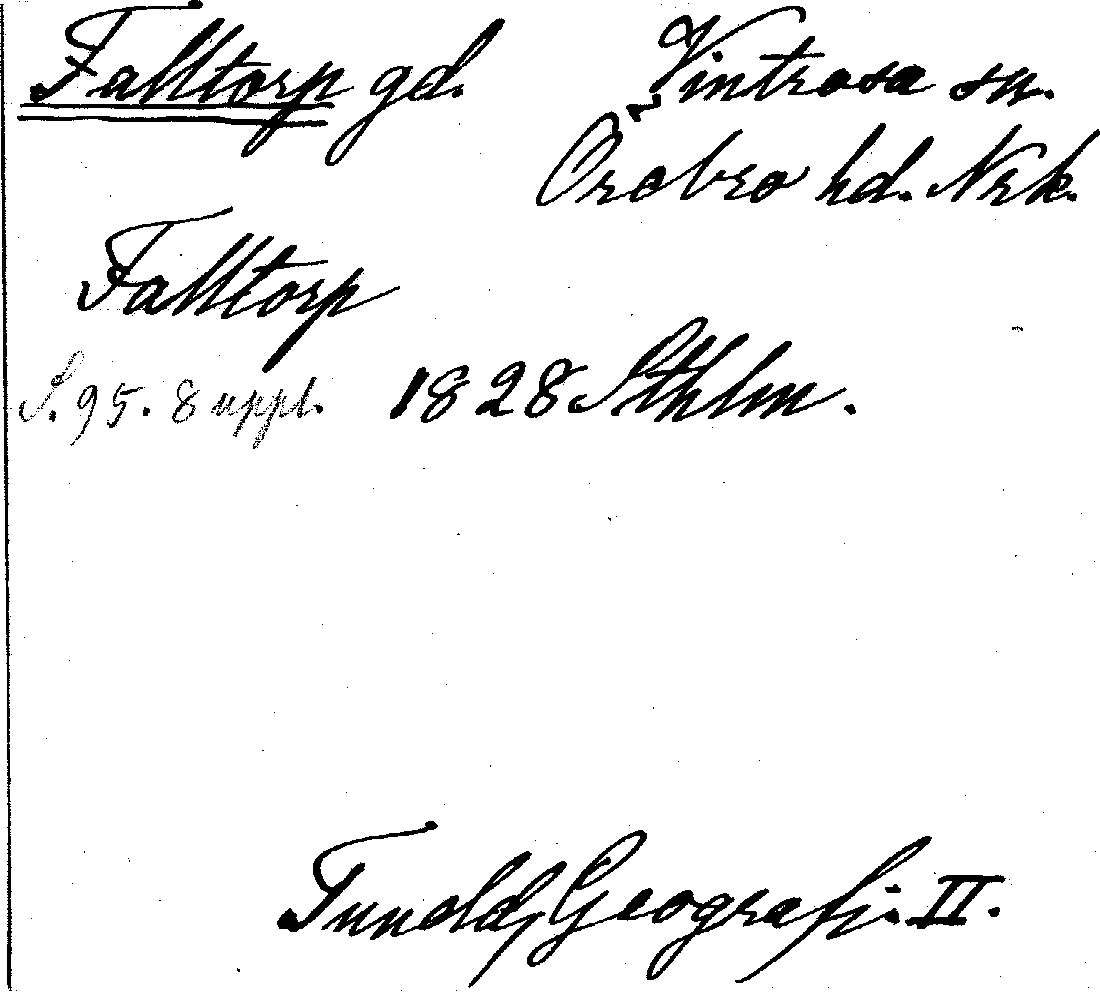 Falltorp gd. Vintrosa sn.
Örebro hd. Nrk.
Falltorp
S. 95. 8 uppl. 1828 Sthlm.
Tuneld, Geografi. II.